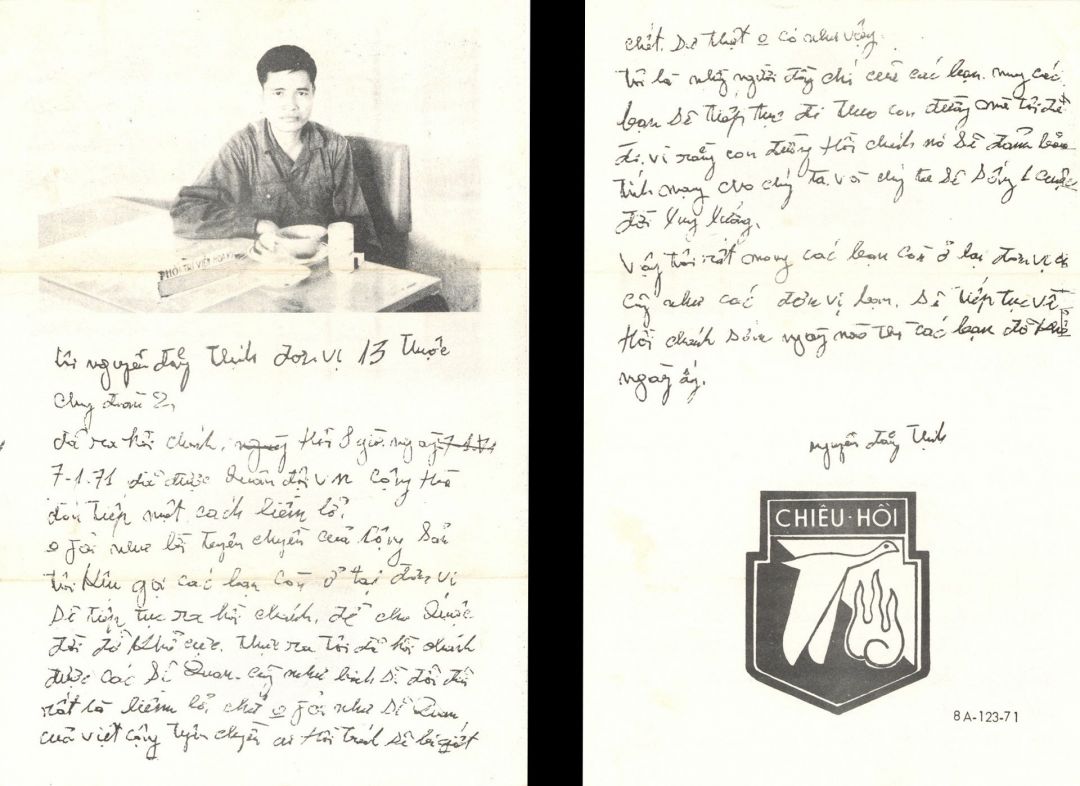 PHỞ TRI VIỄN HOÀNG
tôi nguyễn đắg Thịnh đơn vị 13 Thuộc
Chug đoàn 2,
đã ra hồi chánh, ngày Hồi 8 giờ ngày 7.1.71
7-1.71 đã được Quân đội V N Cộng Hòa
đón tiếp một cách liềm lở.
o fải như lời tuyên chuyền cuả Cộng Sản
tôi Kêu gọi các bạn còn ở tại đơn vị
Sẽ tiếp tục ra hồi chánh, để cho được
đời đở Khổ cực. thực ra tôi đã hồi chánh
được các Sĩ Quan. cũg như binh Sĩ đối đãi
rất là liềm lở, chớ o fải như Sĩ Quan,
cuả việt cộng tuyên chuyền ai Hồi chánh Sẽ bị giết
chết. Sự thật o có như vậy.
tôi là nhữg người đồg chí cuả các bạn. mog các
bạn Sẽ tiếp tục đi theo con đườg mà tôi đã
đi. vì rằg con đườg Hồi chánh nó Sẽ đảm bảo
tính mạg cho chúg ta. và chúg ta Sẽ Sốg 1 cuộc
đời Sug Sướg.
Vậy tôi rất mog các bạn còn ở lại đơn vị
cũg như các đơn vị bạn. Sẽ tiếp tục về
Hồi chánh Sớm ngày nào thì các bạn đỡ khổ
ngày ấy.
nguyễn đắg Thịnh
CHIÊU·HỒI
8A-123-71